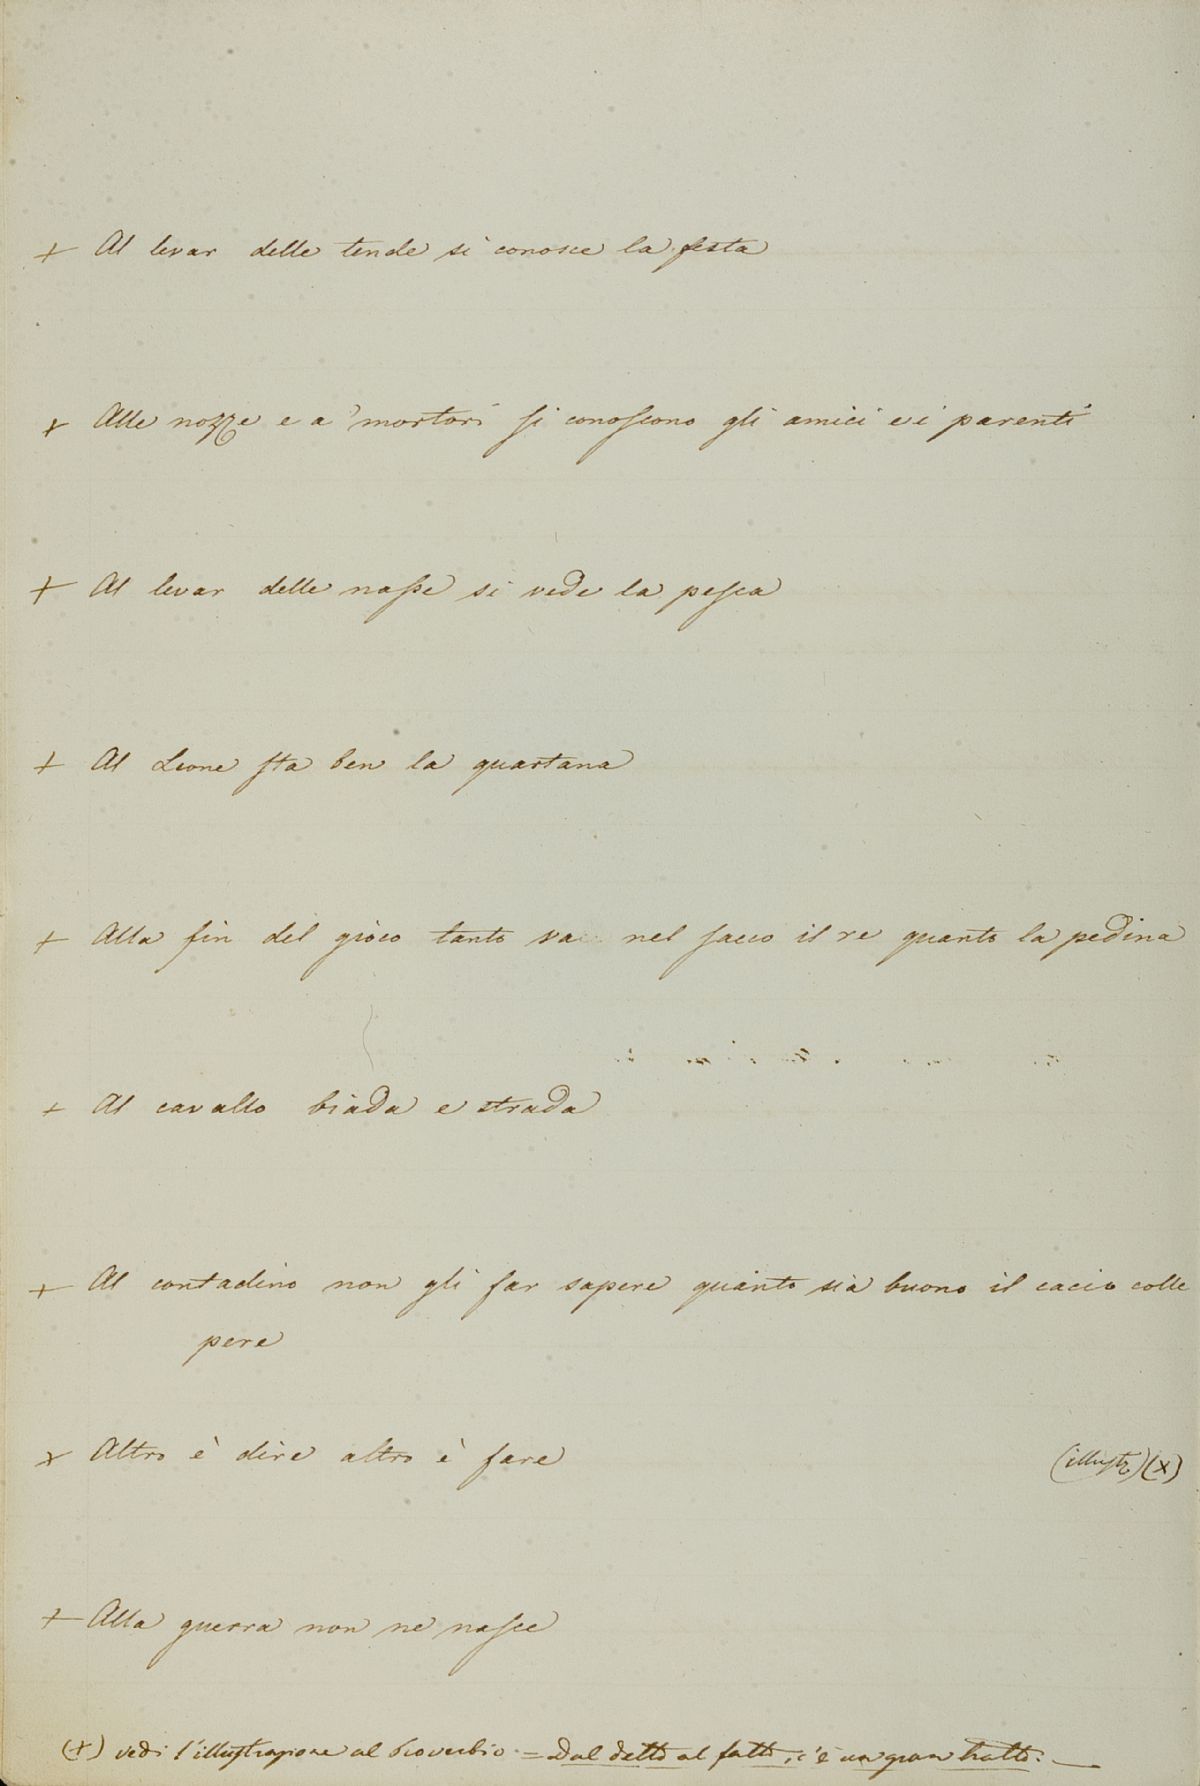 + Al levar delle tende si conosce la festa
+ Alle nozze e a' mortori si conoscono gli amici e i parenti
+ Al levar delle nasse si vede la pesca
+ Al Leone sta ben la quartana
+ Alla fin del gioco tanto va nel sacco il re quanto la pedina
+ Al cavallo biada e strada
+ Al contadino non gli far sapere quanto sia buono il cacio colle
pere
+ Altro è dire altro è fare (illustr.) (x)
+ Alla guerra non ne nasce
(x) vedi l'illustrazione al Proverbio = Dal detto al fatto, c'è un gran tratto. —